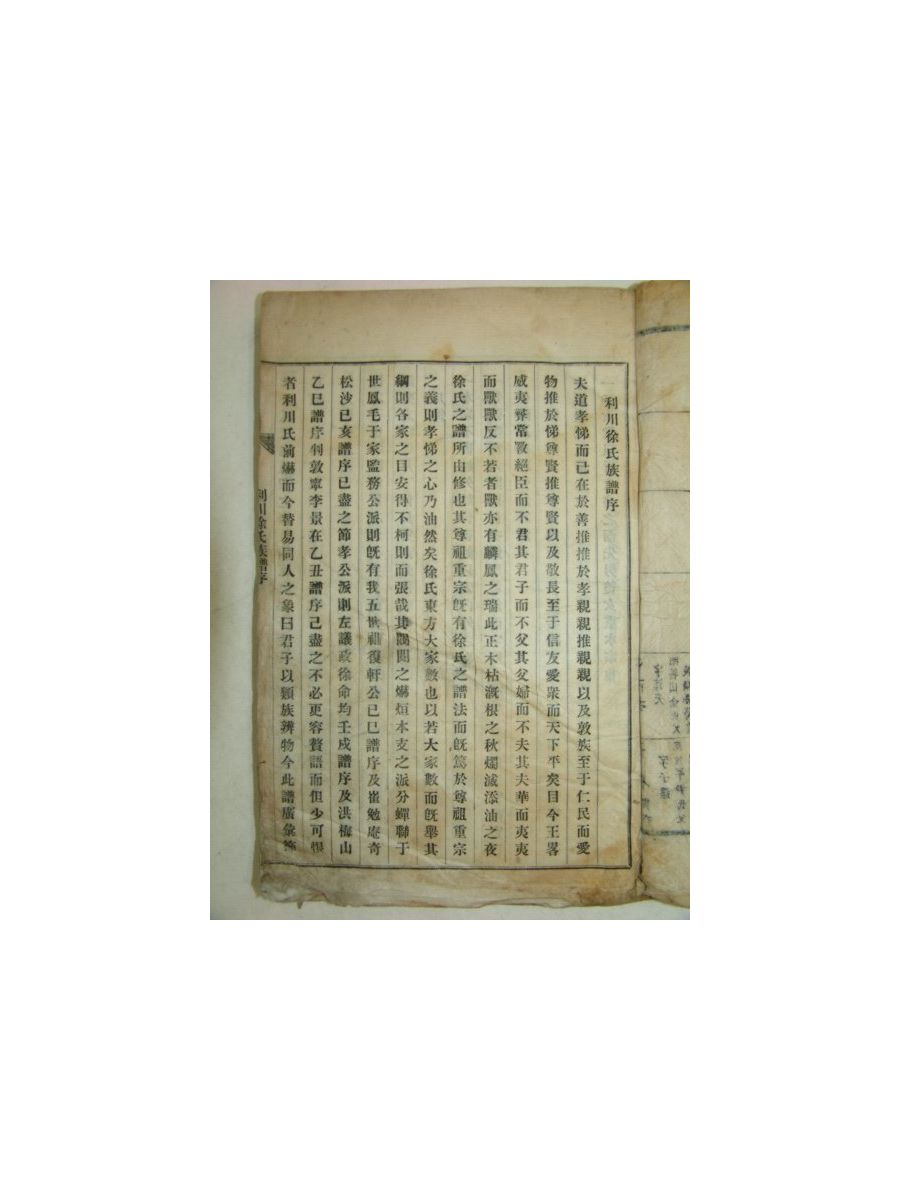 利川徐氏族譜序
夫道孝悌而已在於善推推於孝親親推親親以及敦族至于仁民而愛
物推於悌尊賢推尊賢以及敬長至于信友愛衆而天下平矣目今王畧
威夷彛常斁絕臣而不君其君子而不父其父婦而不夫其夫華而夷夷
而獸獸反不若者獸亦有麟鳳之瑞此正木枯漑根之秋燭滅添油之夜
徐氏之譜所由修也其尊祖重宗旣有徐氏之譜法而旣篤於尊祖重宗
之義則孝悌之心乃油然矣徐氏東方大家數也以若大家數而旣舉其
綱則各家之目安得不柯則而張哉其閥閱之爀烜本支之派分蟬聯于
世鳳毛于家監務公派則旣有我五世祖復軒公己巳譜序及崔勉庵奇
松沙己亥譜序已盡之節孝公派則左議政徐命均壬戌譜序及洪梅山
乙巳譜序判敦寧李景在乙丑譜序已盡之不必更容贅語而但少可恨
者利川氏前爀而今替易同人之象曰君子以類族辨物今此譜廣彙
利川徐氏族譜序
一